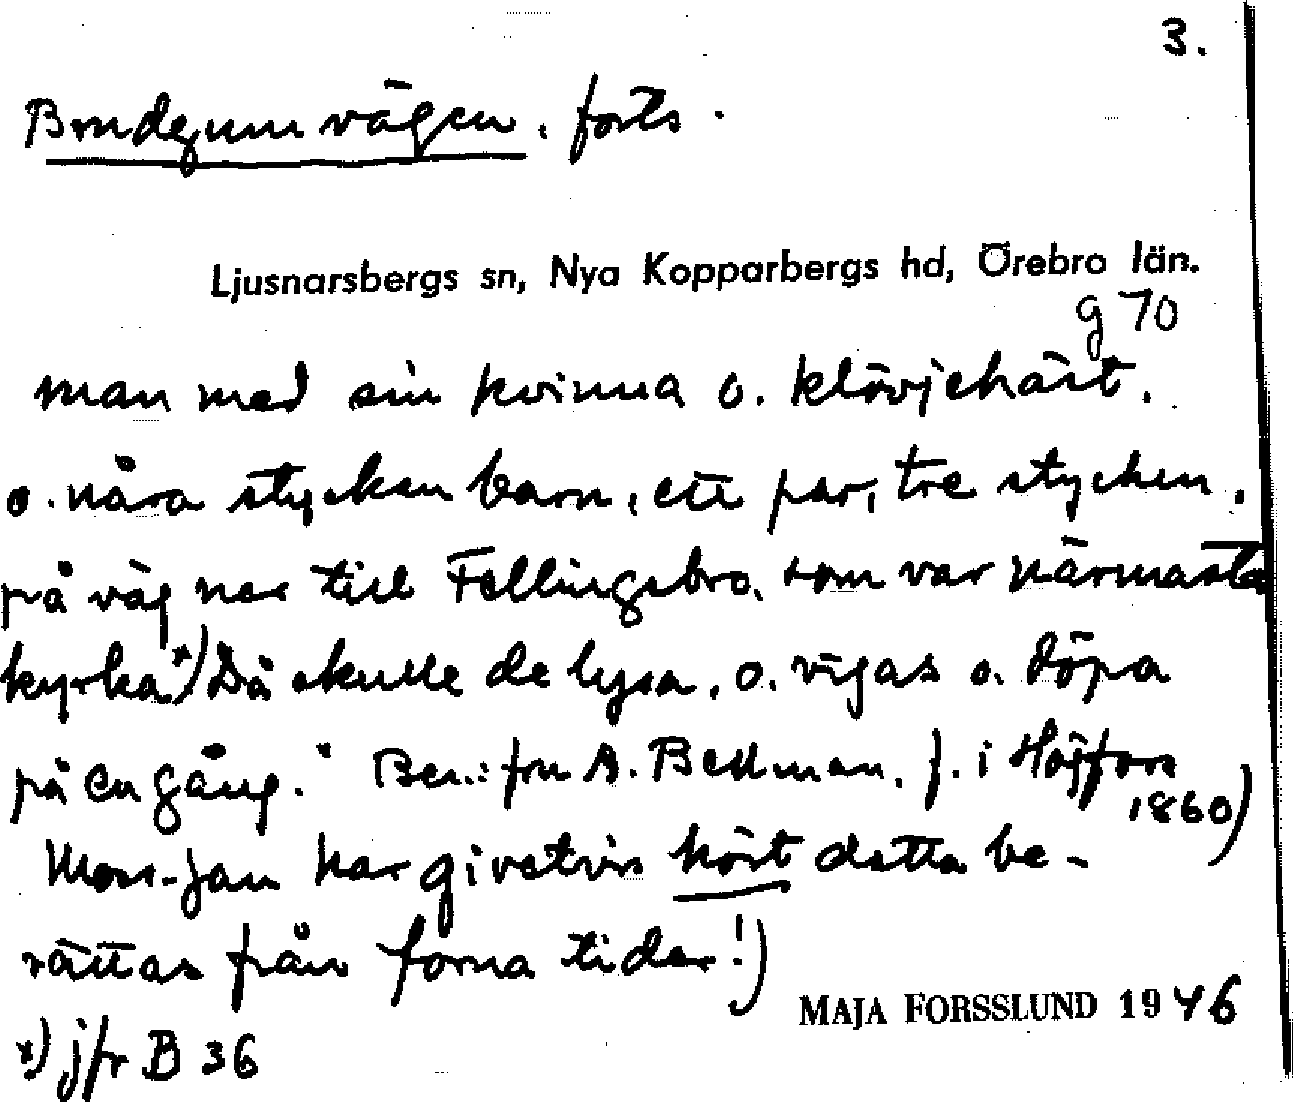 3.
Bondgumvägen. forts.
Ljusnarsbergs sn, Nya Kopparbergs hd, Örebro län.
g 70
man med sin kvinna o. klövjehäst.
o. nåra stycken barn, ett par, tre stycken.
på väg ner till Fellingsbro. som var närmasta
kyrka x) Då skulle de lysa, o. vigas o. döpa
på en gång." Ber.: fru A. Bellman. f. i Högfors
1860)
Mass-Jan har givetvis hört detta be-
rättas från forna tider!)
MAJA FORSSLUND 1946
x) jfr B 36